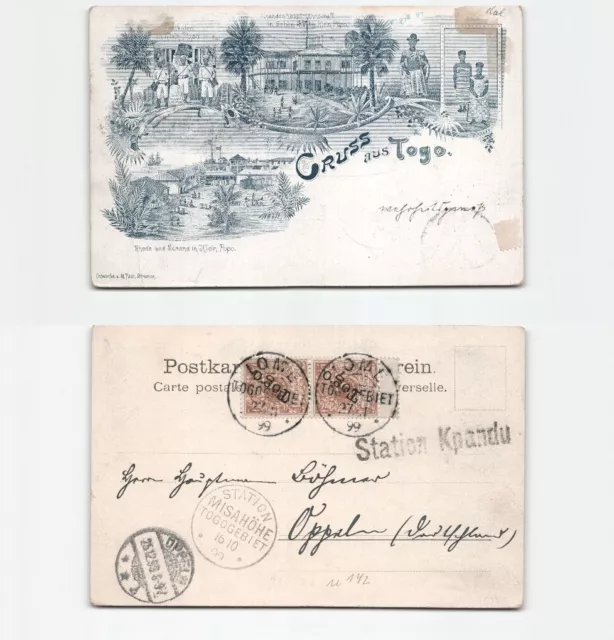 Kat
in Klein Popo.
GRUSS aus Togo.
Rhede und Strand in Klein Popo.
Postkar rein.
Carte postale verselle.
LOME
TOGOGEBIET
99
LOME
TOGOGEBIET
99
Station Kpandu
Herrn Hauptmann Böhmer
Oppeln (Deutschland)
STATION
MISAHÖHE
TOGOGEBIET
16 10
99
OPPELN
142